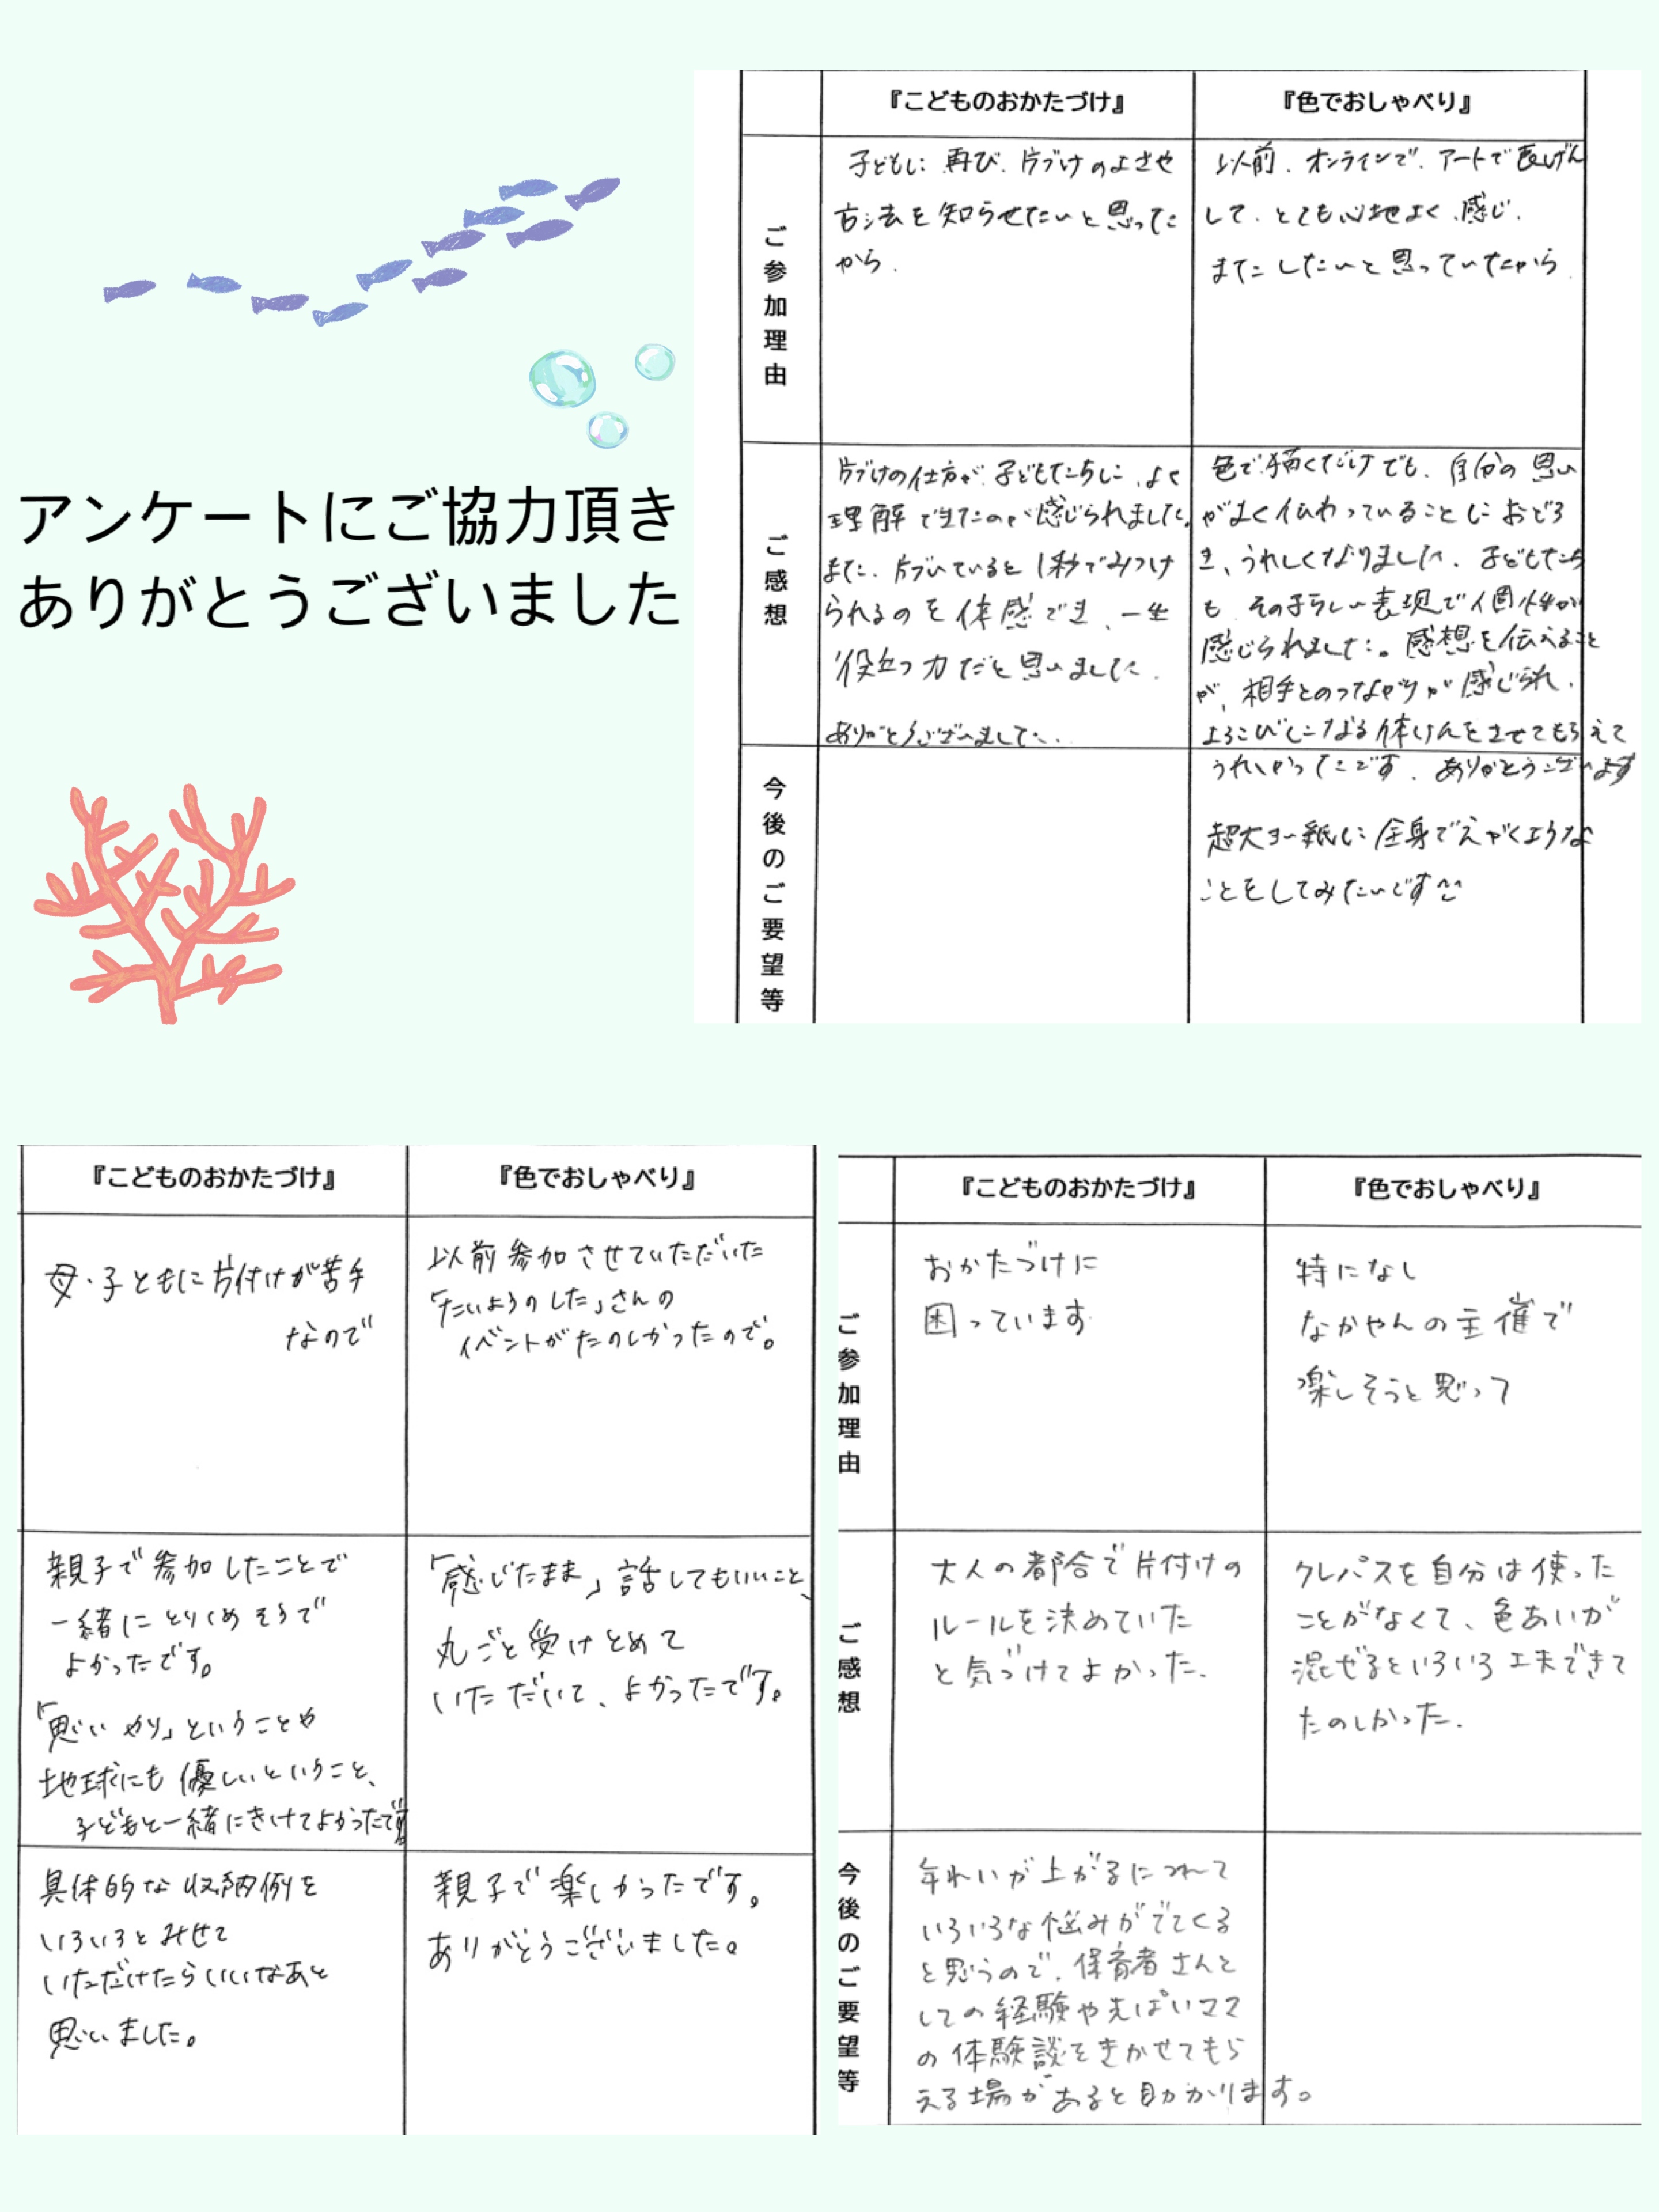 アンケートにご協力頂き
ありがとうございました
『こどものおかたづけ』
『色でおしゃべり』
ご参加理由
子どもに再び、片づけのよさや
方法を知らせたいと思ってた
から.
以前、オンラインで、アートで表げん
して、とても心地よく感じ、
またしたいと思っていたから.
ご感想
片づけの仕方が子どもたちに、よく
理解できたのが感じられました。
また、片づいていると1秒でみつけ
られるのを体感でき、一生
役立つ力だと思いました.
ありがとうございました..
色で描くだけでも、自分の思い
がよく伝わっていることにおどろ
き、うれしくなりました. 子どもたち
も、その子らしい表現で個性が
感じられました。感想を伝えること
が、相手とのつながりが感じられ、
よろこびになる体けんをさせてもらえて
うれしかったです. ありがとうございます
今後のご要望等
超大きい紙に全身でえがくような
ことをしてみたいです
『こどものおかたづけ』
『色でおしゃべり』
母・子ともに片付けが苦手
なので
以前参加させていただいた
「たいようのした」さんの
イベントがたのしかったので。
親子で参加したことで
一緒にとりくめそうで
よかったです。
「思いやり」ということや
地球にも優しいということ、
子どもと一緒にきけてよかったです
「感じたまま」話してもいいこと、
丸ごと受けとめて
いただいて、よかったです。
具体的な収納例を
いろいろとみせて
いただけたらいいなあと
思いました。
親子で楽しかったです。
ありがとうございました。
『こどものおかたづけ』
『色でおしゃべり』
ご参加理由
おかたづけに
困っています
特になし
なかやんの主催で
楽しそうと思って
ご感想
大人の都合で片付けの
ルールを決めていた
と気づけてよかった.
クレパスを自分は使った
ことがなくて、色あいが
混ぜるといろいろ工夫できて
たのしかった.
今後のご要望等
年れいが上がるにつれて
いろいろな悩みがでてくる
と思うので、保育者さんと
しての経験や先ぱいママ
の体験談をきかせてもら
える場があると助かります。